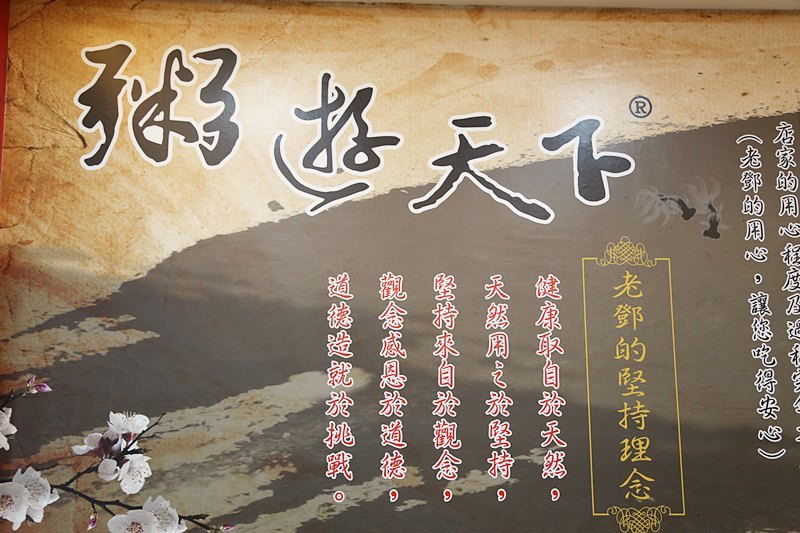 粥遊天下®
店家的用心程度及過程安全
(老鄧的用心，讓您吃得安心)
老鄧的堅持理念
健康取自於天然，
天然用之於堅持，
堅持來自於觀念，
觀念感恩於道德，
道德造就於挑戰。